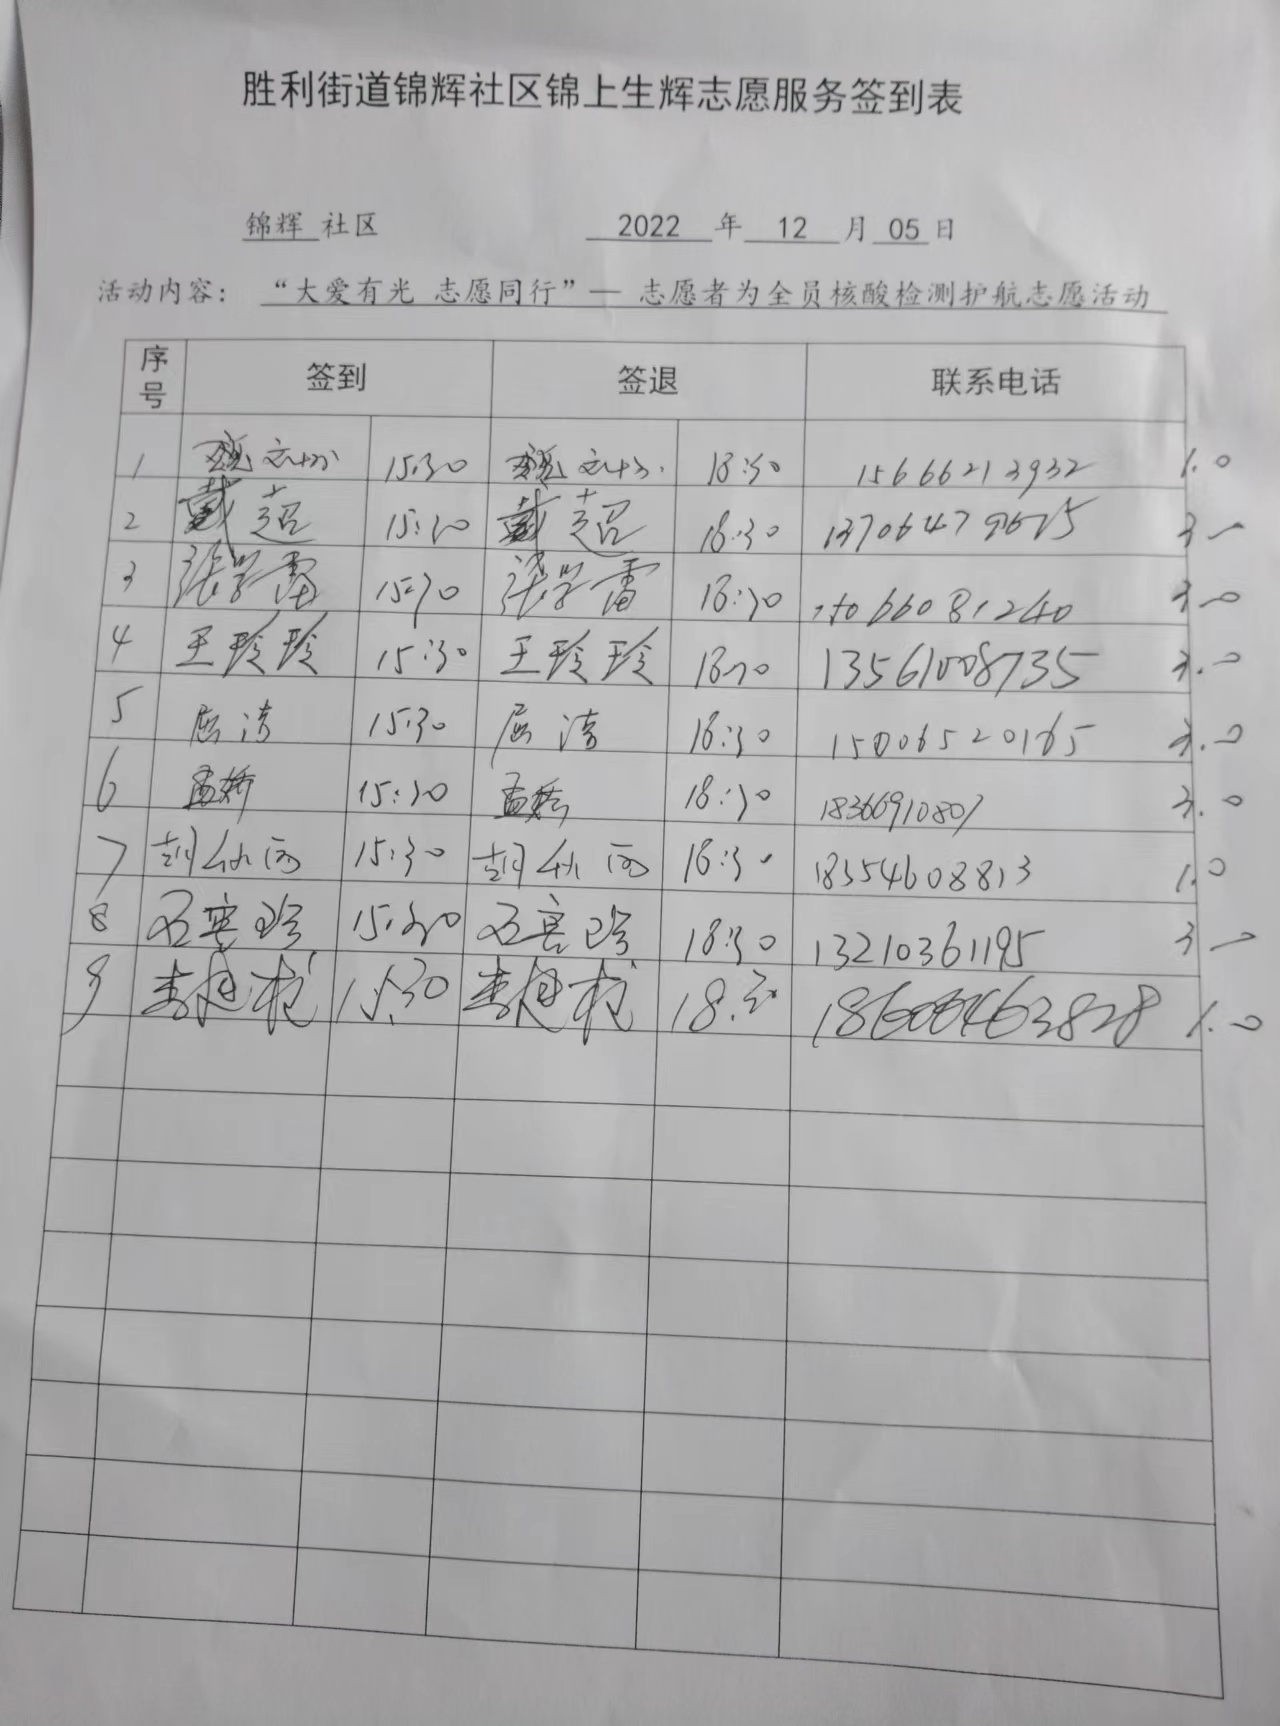 胜利街道锦辉社区锦上生辉志愿服务签到表
锦辉 社区 2022 年 12 月 05 日
活动内容： “大爱有光 志愿同行”— 志愿者为全员核酸检测护航志愿活动
序号 签到 签退 联系电话
1 15:30 18:30 15666213932 1.0
2 戴超 15:30 戴超 18:30 3.0
3 张学雷 15:30 张学雷 18:30 15066081240 3.0
4 王玲玲 15:30 王玲玲 18:30 13561008735 3.0
5 屈涛 15:30 屈涛 18:30 15006520165 3.0
6 孟娇 15:30 孟娇 18:30 18366910807 3.0
7 15:30 18:30 18354608813 1.0
8 15:30 18:30 13210361195 3.0
9 15:30 18:30 1.0